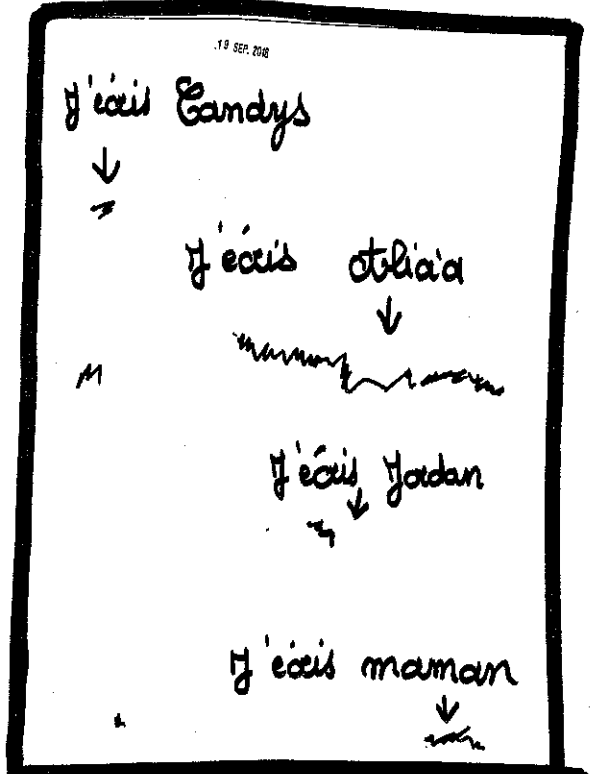 19 SEP. 2018
J'écris Candys
J'écris
J'écris Jordan
J'écris maman